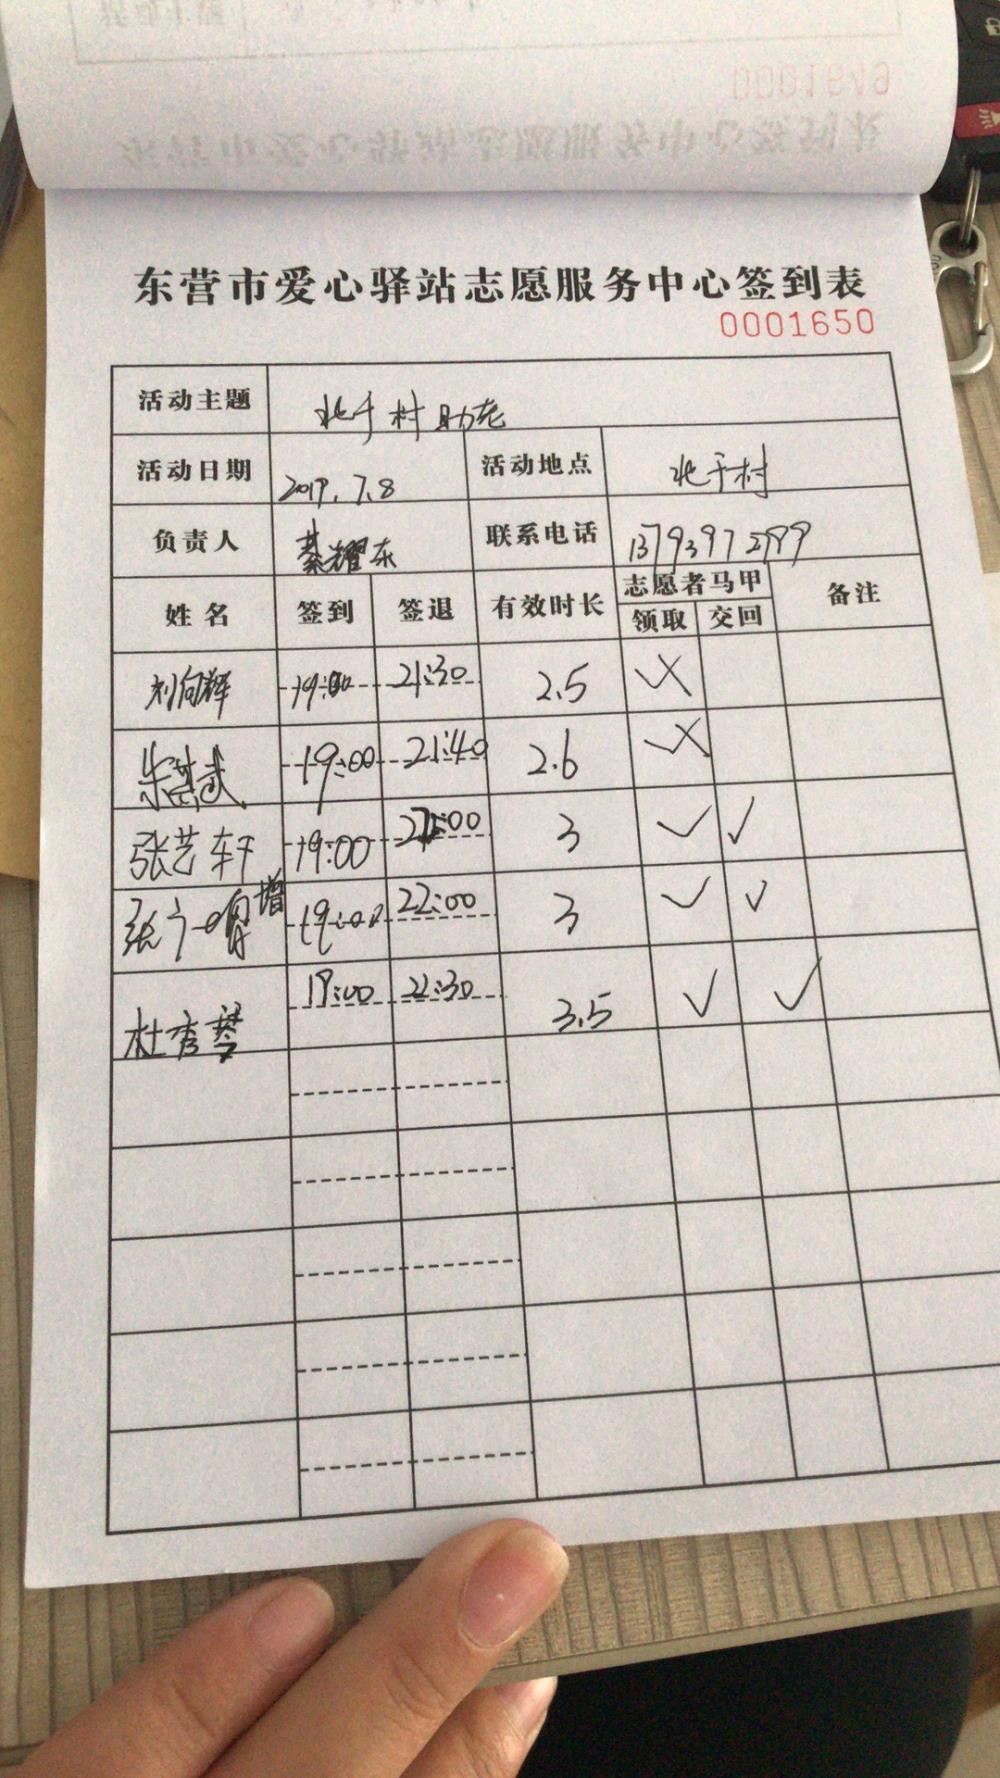 东营市爱心驿站志愿服务中心签到表
0001650
活动主题 北于村助老
活动日期 2019.7.8 活动地点 北于村
负责人 綦耀东 联系电话 13793972999
姓名 签到 签退 有效时长 志愿者马甲 备注
领取 交回
刘向辉 19:00 21:30 2.5
19:00 21:40 2.6
张艺轩 19:00 22:00 3 ✓ ✓
19:00 22:00 3 ✓ ✓
杜秀琴 19:00 22:30 3.5 ✓ ✓